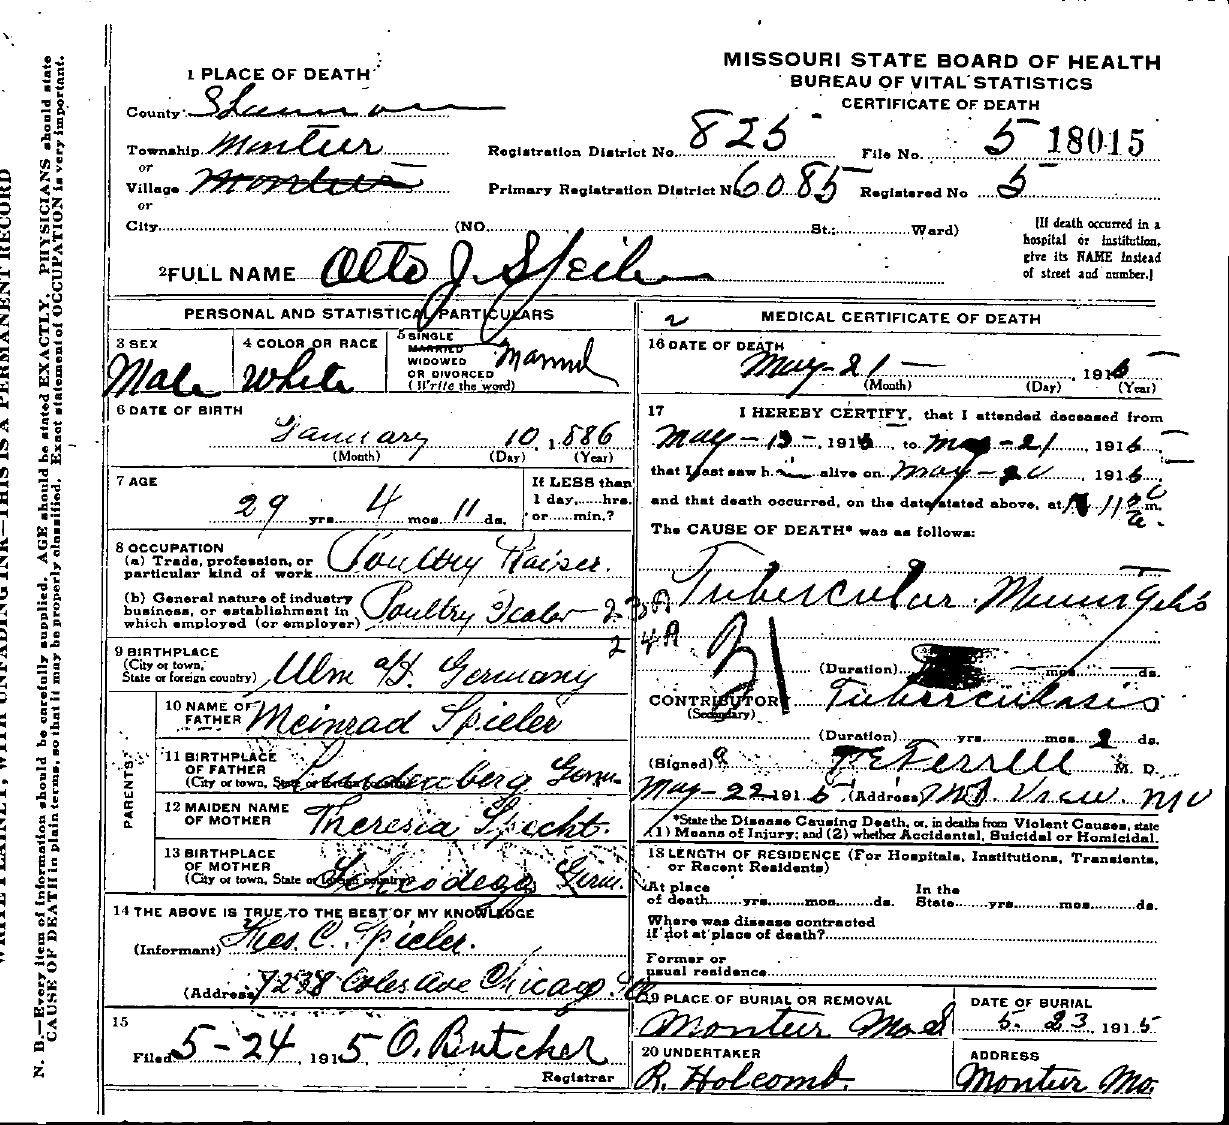 MISSOURI STATE BOARD OF HEALTH
BUREAU OF VITAL STATISTICS
CERTIFICATE OF DEATH
1 PLACE OF DEATH
County Shannon
Township Montier
or
Village
or
City
Registration District No. 825
File No. 5 18015
Primary Registration District No. 6085
Registered No 5
(NO. St.; Ward)
[If death occurred in a
hospital or institution,
give its NAME instead
of street and number.]
2 FULL NAME Otto J. Speiler
PERSONAL AND STATISTICAL PARTICULARS
3 SEX
Male
4 COLOR OR RACE
White
5 SINGLE
MARRIED
WIDOWED
OR DIVORCED
(Write the word)
Married
6 DATE OF BIRTH
January 10, 1886
(Month) (Day) (Year)
7 AGE
29 yrs. 4 mos. 11 ds.
If LESS than
1 day,......hrs.
or......min.?
8 OCCUPATION
(a) Trade, profession, or
particular kind of work Poultry Raiser.
(b) General nature of industry
business, or establishment in
which employed (or employer) Poultry
9 BIRTHPLACE
(City or town,
State or foreign country) Ulm a/d. Germany
PARENTS
10 NAME OF
FATHER Meinrad Spieler
11 BIRTHPLACE
OF FATHER
(City or town, State or foreign country) Germ.
12 MAIDEN NAME
OF MOTHER Theresia Specht.
13 BIRTHPLACE
OF MOTHER
(City or town, State or foreign country) Germ.
14 THE ABOVE IS TRUE TO THE BEST OF MY KNOWLEDGE
(Informant) C. Spieler.
(Address) 7238 Coles Ave Chicago. Ill
15
Filed 5-24, 1915 O. Butcher
Registrar
2 MEDICAL CERTIFICATE OF DEATH
16 DATE OF DEATH
May-21-, 1915
(Month) (Day) (Year)
17 I HEREBY CERTIFY, that I attended deceased from
May-13-, 1915, to May-21, 1915
that I last saw h alive on May-20, 1915,
and that death occurred, on the date stated above, at m.
The CAUSE OF DEATH* was as follows:
Tubercular Meningitis
31
(Duration) mos. ds.
CONTRIBUTORY Tuberculosis
(Secondary)
(Duration) yrs. mos. 2 ds.
(Signed) Ferrell M. D.
May-22 1915 (Address) Mt. View. Mo
*State the Disease Causing Death, or, in deaths from Violent Causes, state
(1) Means of Injury; and (2) whether Accidental, Suicidal or Homicidal.
18 LENGTH OF RESIDENCE (For Hospitals, Institutions, Transients,
or Recent Residents)
At place
of death......yrs......mos......ds.
In the
State......yrs......mos......ds.
Where was disease contracted
if not at place of death?
Former or
usual residence
19 PLACE OF BURIAL OR REMOVAL
Montier Mo
DATE OF BURIAL
5. 23, 1915
20 UNDERTAKER
R. Holcomb.
ADDRESS
Montier Mo.
WRITE PLAINLY, WITH UNFADING INK—THIS IS A PERMANENT RECORD
N. B.—Every item of information should be carefully supplied. AGE should be stated EXACTLY. PHYSICIANS should state
CAUSE OF DEATH in plain terms, so that it may be properly classified. Exact statement of OCCUPATION is very important.